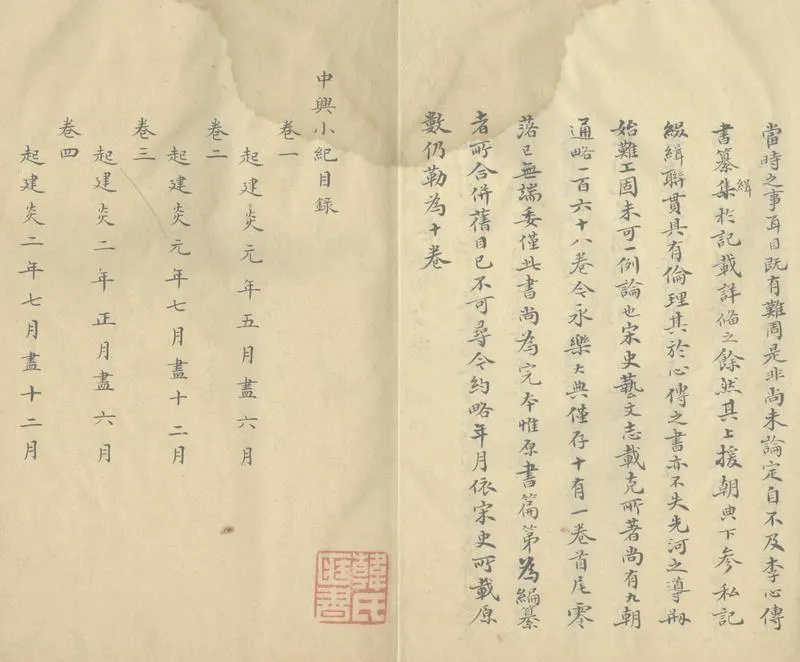 當時之事耳目既有難周是非尚未論定自不及李心傳
書纂集於記載詳俻之餘然其上援朝典下參私記
緝
綴緝聯貫具有倫理其於心傳之書亦不失先河之導刱
始難工固未可一例論也宋史藝文志載克所著尚有九朝
通略一百六十八卷今永樂大典僅存十有一卷首尾零
落已無端委僅此書尚為完本惟原書篇第為編纂
者所合併舊目已不可尋今約略年月依宋史所載原
數仍勒為十卷
中興小紀目錄
卷一
起建炎元年五月盡六月
卷二
起建炎元年七月盡十二月
卷三
起建炎二年正月盡六月
卷四
起建炎二年七月盡十二月
韓氏